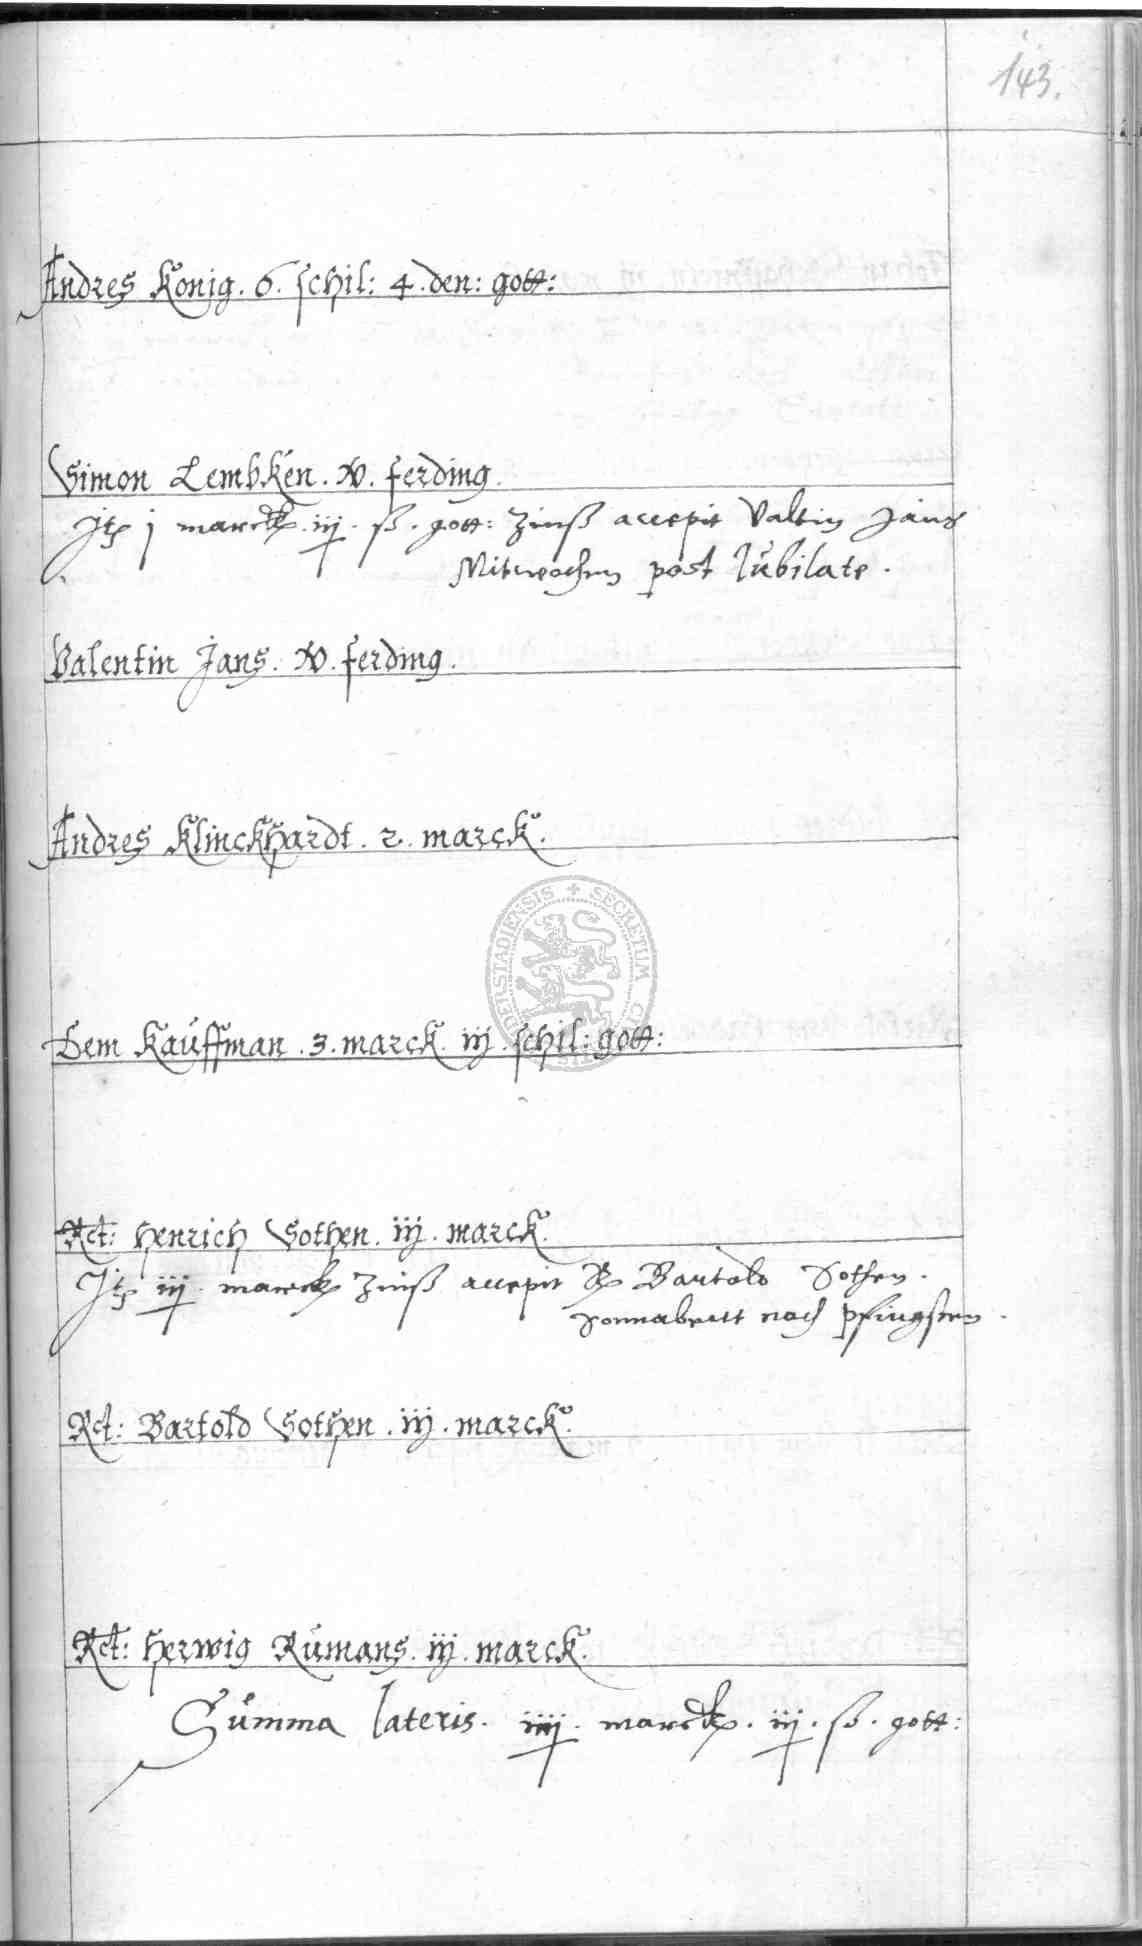 143.
Andres Konig. 6. schil: 4. den: gott:
Simon Lembken. ferding.
j marck. iij. ß. gott: Zinß accepit Valtin Jans
Mitwochen post Jubilate.
Valentin Jans. ferding.
Andres Klinckhardt. 2. marck.
Dem Kauffman. 3. marck. iij. schil: gott:
Rct: Henrich Sothen. iij. marck.
iij. marck Zinß accepit Bartold Sothen.
Sonnabentt nach Pfingsten.
Rct: Bartold Sothen. iij. marck.
Rct: Herwig Rumans. iij. marck.
Summa lateris. iiij. marck. iij. ß. gott:
DERSTADIENSIS + SECRETUM